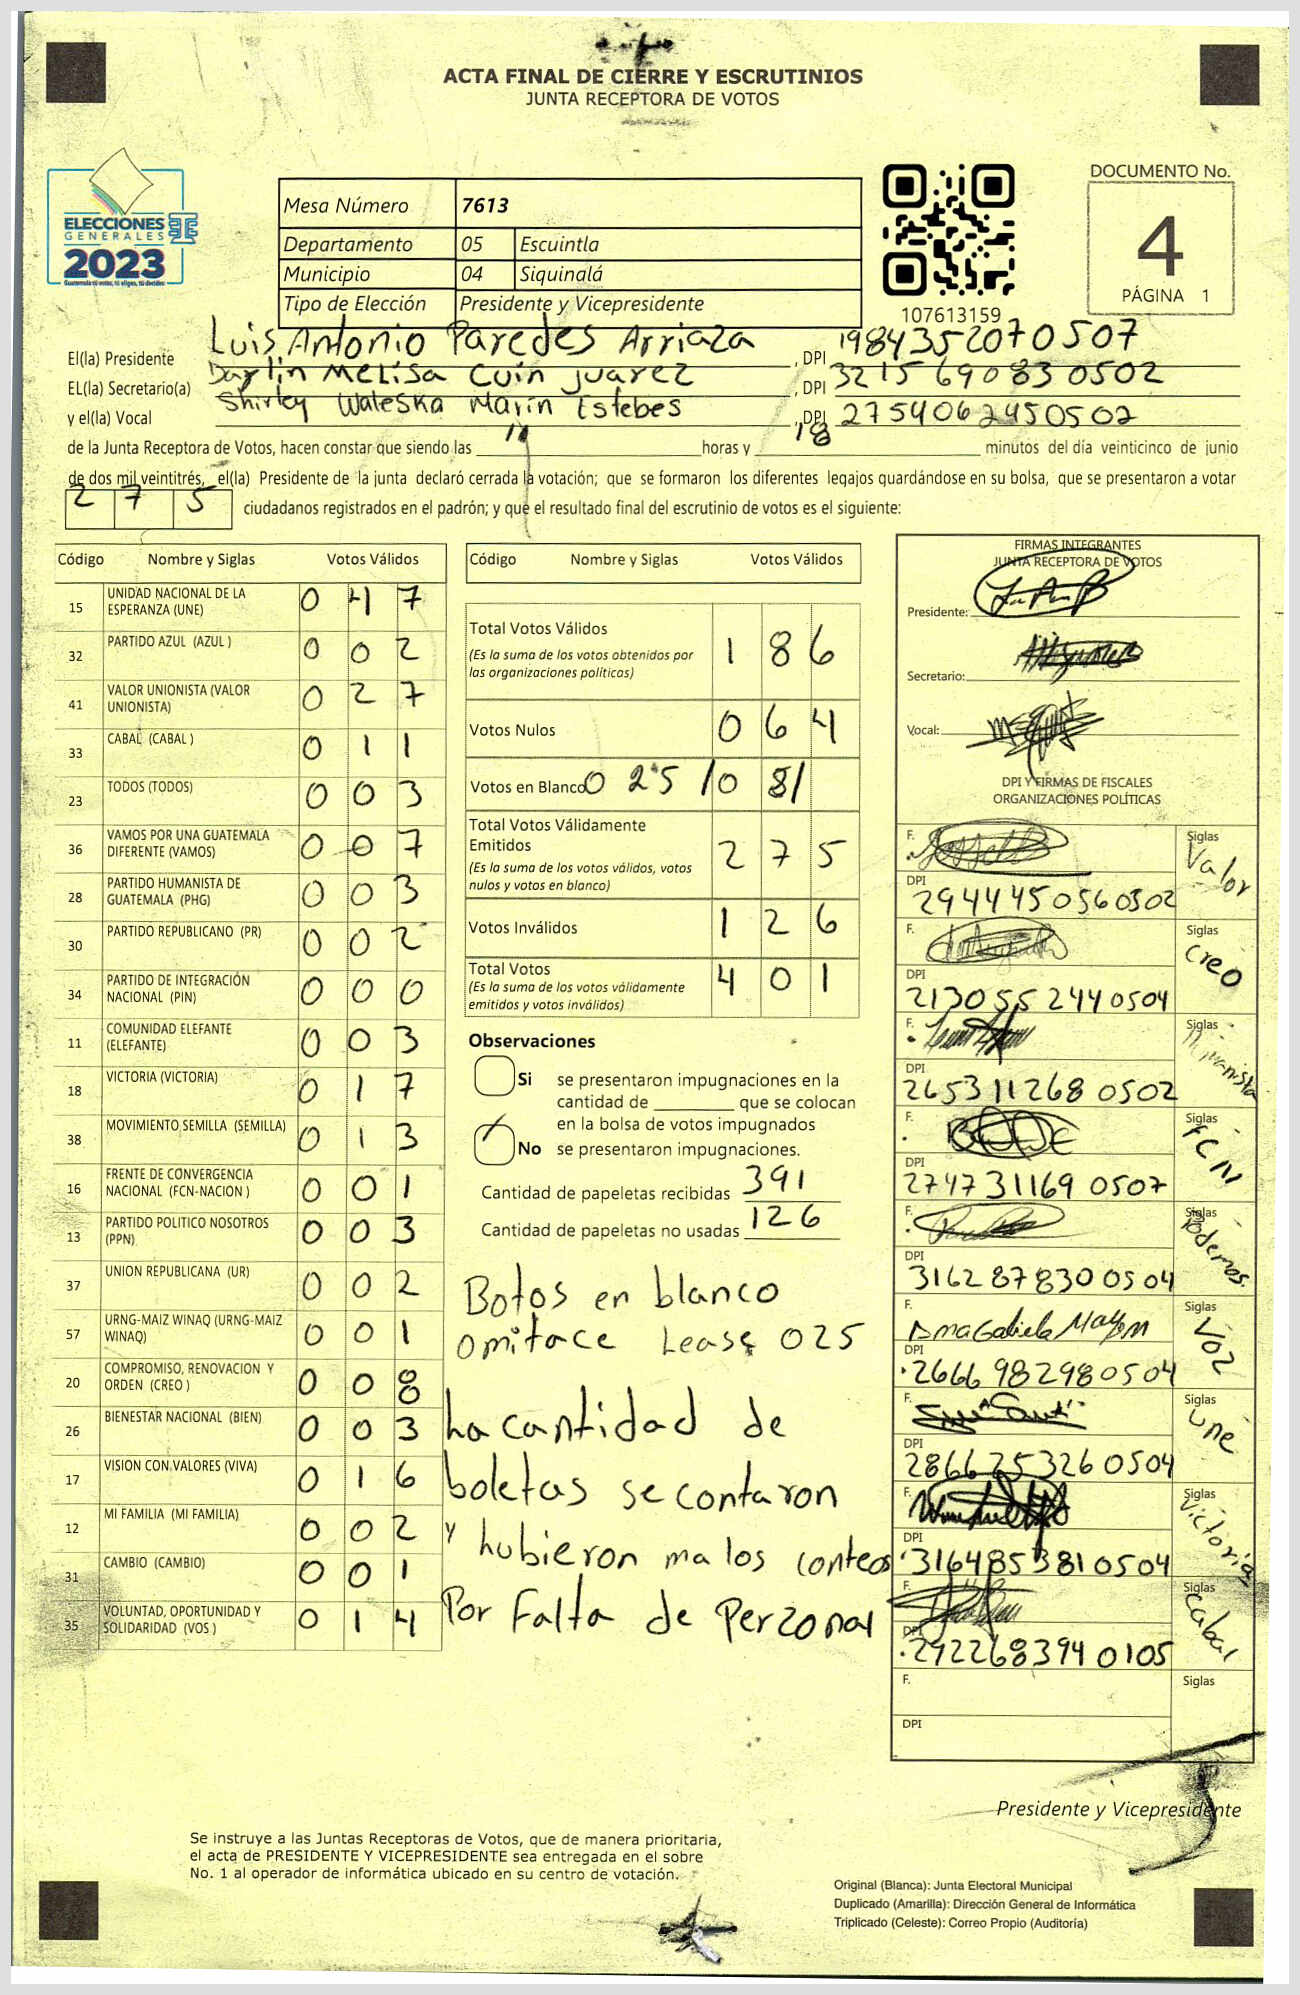 ACTA FINAL DE CIERRE Y ESCRUTINIOS
JUNTA RECEPTORA DE VOTOS
ELECCIONES
GENERALES
2023
Guatemala tú votas, tú eliges, tú decides
Mesa Número 7613
Departamento 05 Escuintla
Municipio 04 Siquinalá
Tipo de Elección Presidente y Vicepresidente
107613159
DOCUMENTO No.
4
PÁGINA 1
El(la) Presidente Luis Antonio Paredes Arriaza , DPI 1984352070507
EL(la) Secretario(a) Darlin Melisa Cuin Juarez , DPI 3215690830502
y el(la) Vocal Shirley Waleska Marin Estebes , DPI 2754062450502
de la Junta Receptora de Votos, hacen constar que siendo las horas y 18 minutos del día veinticinco de junio
de dos mil veintitrés, el(la) Presidente de la junta declaró cerrada la votación; que se formaron los diferentes legajos guardándose en su bolsa, que se presentaron a votar
2 7 5 ciudadanos registrados en el padrón; y que el resultado final del escrutinio de votos es el siguiente:
Código Nombre y Siglas Votos Válidos
15 UNIDAD NACIONAL DE LA ESPERANZA (UNE) 0 4 7
32 PARTIDO AZUL (AZUL ) 0 0 2
41 VALOR UNIONISTA (VALOR UNIONISTA) 0 2 7
33 CABAL (CABAL ) 0 1 1
23 TODOS (TODOS) 0 0 3
36 VAMOS POR UNA GUATEMALA DIFERENTE (VAMOS) 0 0 7
28 PARTIDO HUMANISTA DE GUATEMALA (PHG) 0 0 3
30 PARTIDO REPUBLICANO (PR) 0 0 2
34 PARTIDO DE INTEGRACIÓN NACIONAL (PIN) 0 0 0
11 COMUNIDAD ELEFANTE (ELEFANTE) 0 0 3
18 VICTORIA (VICTORIA) 0 1 7
38 MOVIMIENTO SEMILLA (SEMILLA) 0 1 3
16 FRENTE DE CONVERGENCIA NACIONAL (FCN-NACION ) 0 0 1
13 PARTIDO POLITICO NOSOTROS (PPN) 0 0 3
37 UNION REPUBLICANA (UR) 0 0 2
57 URNG-MAIZ WINAQ (URNG-MAIZ WINAQ) 0 0 1
20 COMPROMISO, RENOVACION Y ORDEN (CREO ) 0 0 8
26 BIENESTAR NACIONAL (BIEN) 0 0 3
17 VISION CON VALORES (VIVA) 0 1 6
12 MI FAMILIA (MI FAMILIA) 0 0 2
31 CAMBIO (CAMBIO) 0 0 1
35 VOLUNTAD, OPORTUNIDAD Y SOLIDARIDAD (VOS ) 0 1 4
Código Nombre y Siglas Votos Válidos
Total Votos Válidos 1 8 6
(Es la suma de los votos obtenidos por
las organizaciones políticas)
Votos Nulos 0 6 4
Votos en Blanco 0 2 5 /0 8/
Total Votos Válidamente
Emitidos 2 7 5
(Es la suma de los votos válidos, votos
nulos y votos en blanco)
Votos Inválidos 1 2 6
Total Votos 4 0 1
(Es la suma de los votos válidamente
emitidos y votos inválidos)
Observaciones
Si se presentaron impugnaciones en la
cantidad de ________ que se colocan
en la bolsa de votos impugnados
No se presentaron impugnaciones.
Cantidad de papeletas recibidas 391
Cantidad de papeletas no usadas 126
Botos en blanco
omitace Lease 025
La cantidad de
boletas se contaron
y hubieron malos conteos
Por Falta de Perzonal
FIRMAS INTEGRANTES
JUNTA RECEPTORA DE VOTOS
Presidente:
Secretario:
Vocal:
DPI Y FIRMAS DE FISCALES
ORGANIZACIONES POLÍTICAS
F. Siglas Valor
DPI 2944450560502
F. Siglas Creo
DPI 2130552440504
F. Siglas
DPI 2653112680502
F. Siglas FCN
DPI 2747311690507
F. Siglas Podemos
DPI 3162878300504
F. Ana Gabriela Siglas Voz
DPI 2666982980504
F. Siglas Une
DPI 2866253260504
F. Siglas Victoria
DPI 3164853810504
F. Siglas Cabal
DPI 2922683940105
F. Siglas
DPI
Presidente y Vicepresidente
Se instruye a las Juntas Receptoras de Votos, que de manera prioritaria,
el acta de PRESIDENTE Y VICEPRESIDENTE sea entregada en el sobre
No. 1 al operador de informática ubicado en su centro de votación.
Original (Blanca): Junta Electoral Municipal
Duplicado (Amarilla): Dirección General de Informática
Triplicado (Celeste): Correo Propio (Auditoría)